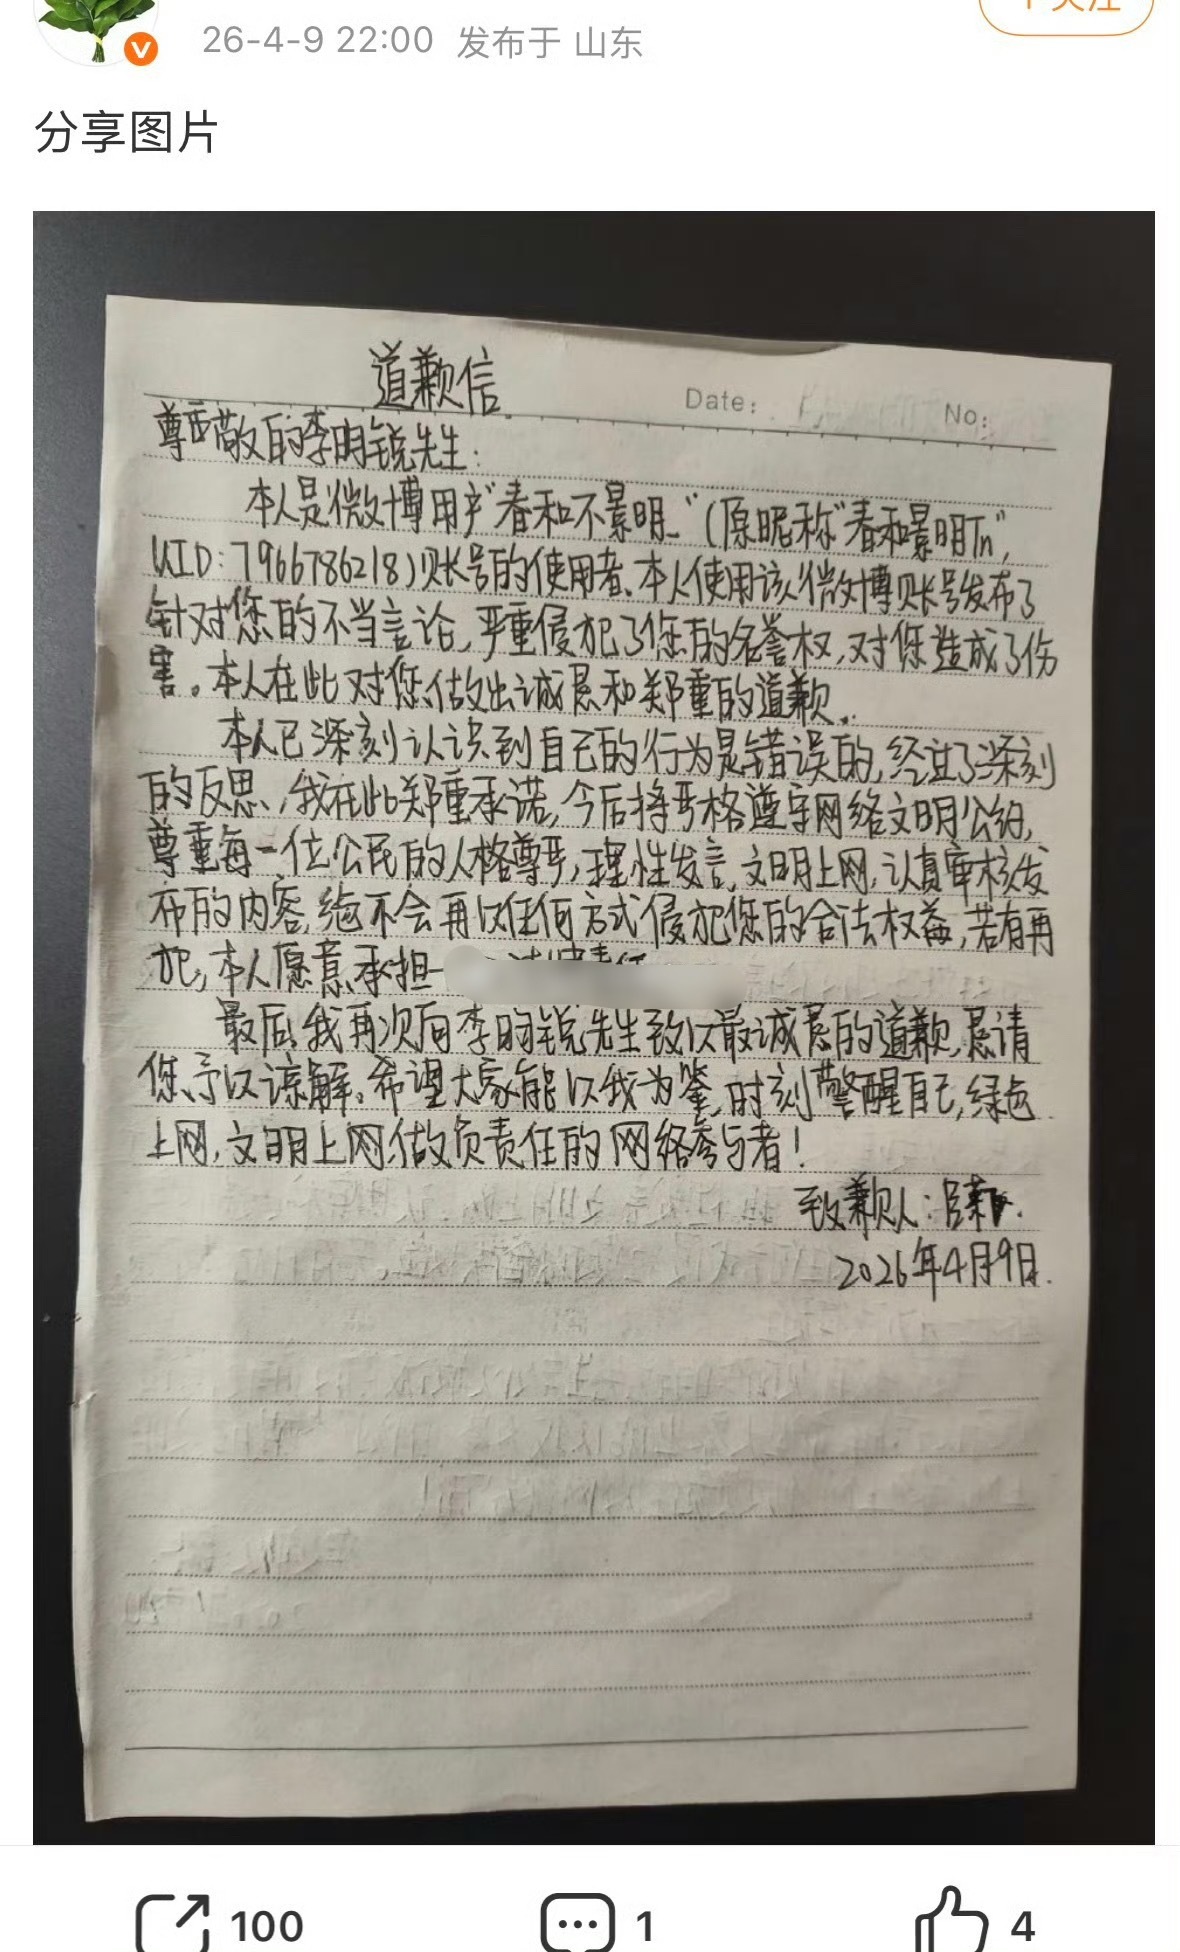 26-4-9 22:00 发布于 山东
关注
分享图片
道歉信
Date:
No:
尊敬的李明锐先生:
本人是微博用户"春和不景明_"(原昵称"春和景明Tn",
UID:7966786218)账号的使用者、本人使用该微博账号发布了
针对您的不当言论,严重侵犯了您的名誉权,对您造成了伤
害。本人在此对您做出诚恳和郑重的道歉。
本人已深刻认识到自己的行为是错误的,经过了深刻
的反思,我在此郑重承诺,今后将严格遵守网络文明公约,
尊重每一位公民的人格尊严,理性发言,文明上网,认真审核发
布的内容,绝不会再以任何方式侵犯您的合法权益,若有再
犯,本人愿意承担一
最后,我再次向李明锐先生致以最诚恳的道歉,恳请
您予以谅解。希望大家能以我为鉴,时刻警醒自己,绿色
上网,文明上网,做负责任的网络参与者!
致歉人:
2026年4月9日.
100
1
4